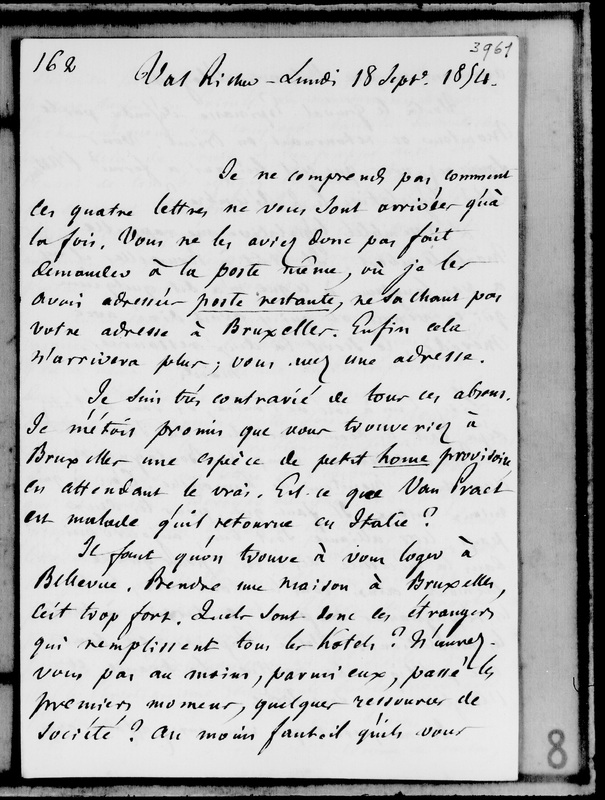 162
3961
Val Richer - Lundi 18 Septe. 1854.
Je ne comprends pas comment
ces quatre lettres ne vous sont arrivées qu'à
la fois. Vous ne les aviez donc pas fait
demander à la poste même, où je les
avais adressées poste restante, ne sachant pas
votre adresse à Bruxelles. Enfin cela
n'arrivera plus ; vous avez une adresse.
Je suis très contrarié de tous ces absens.
Je m'étois promis que vous trouveriez à
Bruxelles une espèce de petit home provisoire,
en attendant le vrai. Est-ce que Van Praet
est malade qu'il retourne en Italie ?
Il faut qu'on trouve à vous loger à
Bellevue. Prendre une maison à Bruxelles,
c'est trop fort. Quels sont donc ces étrangers
qui remplissent tous les hotels ? N'aurez-
vous pas au moins, parmi eux, passé les
premiers momens, quelques ressources de
société ? Au moins faut-il qu'ils vous
8